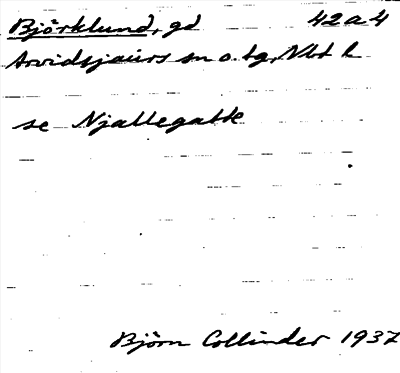 Björklund, gd 42a4
Arvidsjaurs sn o. tg, Vbt l
se Njallegatte
Björn Collinder 1937